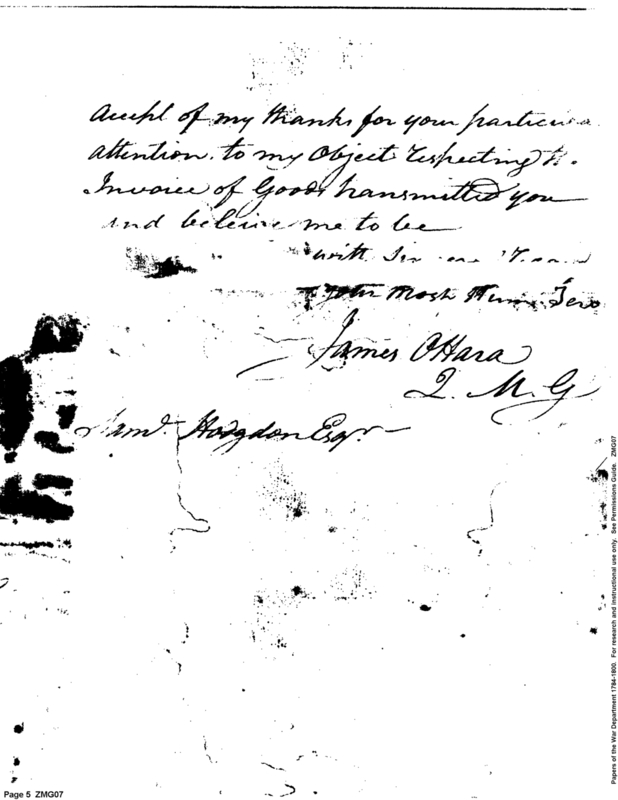 Accept of my thanks for your particular
attention to my Object respecting the
Invoice of Goods transmitted you
and beleive me to be
with
your Most Hum. Serv
James OHara
Q. M. G
Saml. Hodgdon Esqr.
Papers of the War Department 1784-1800. For research and instructional use only. See Permissions Guide. ZMG07
Page 5 ZMG07